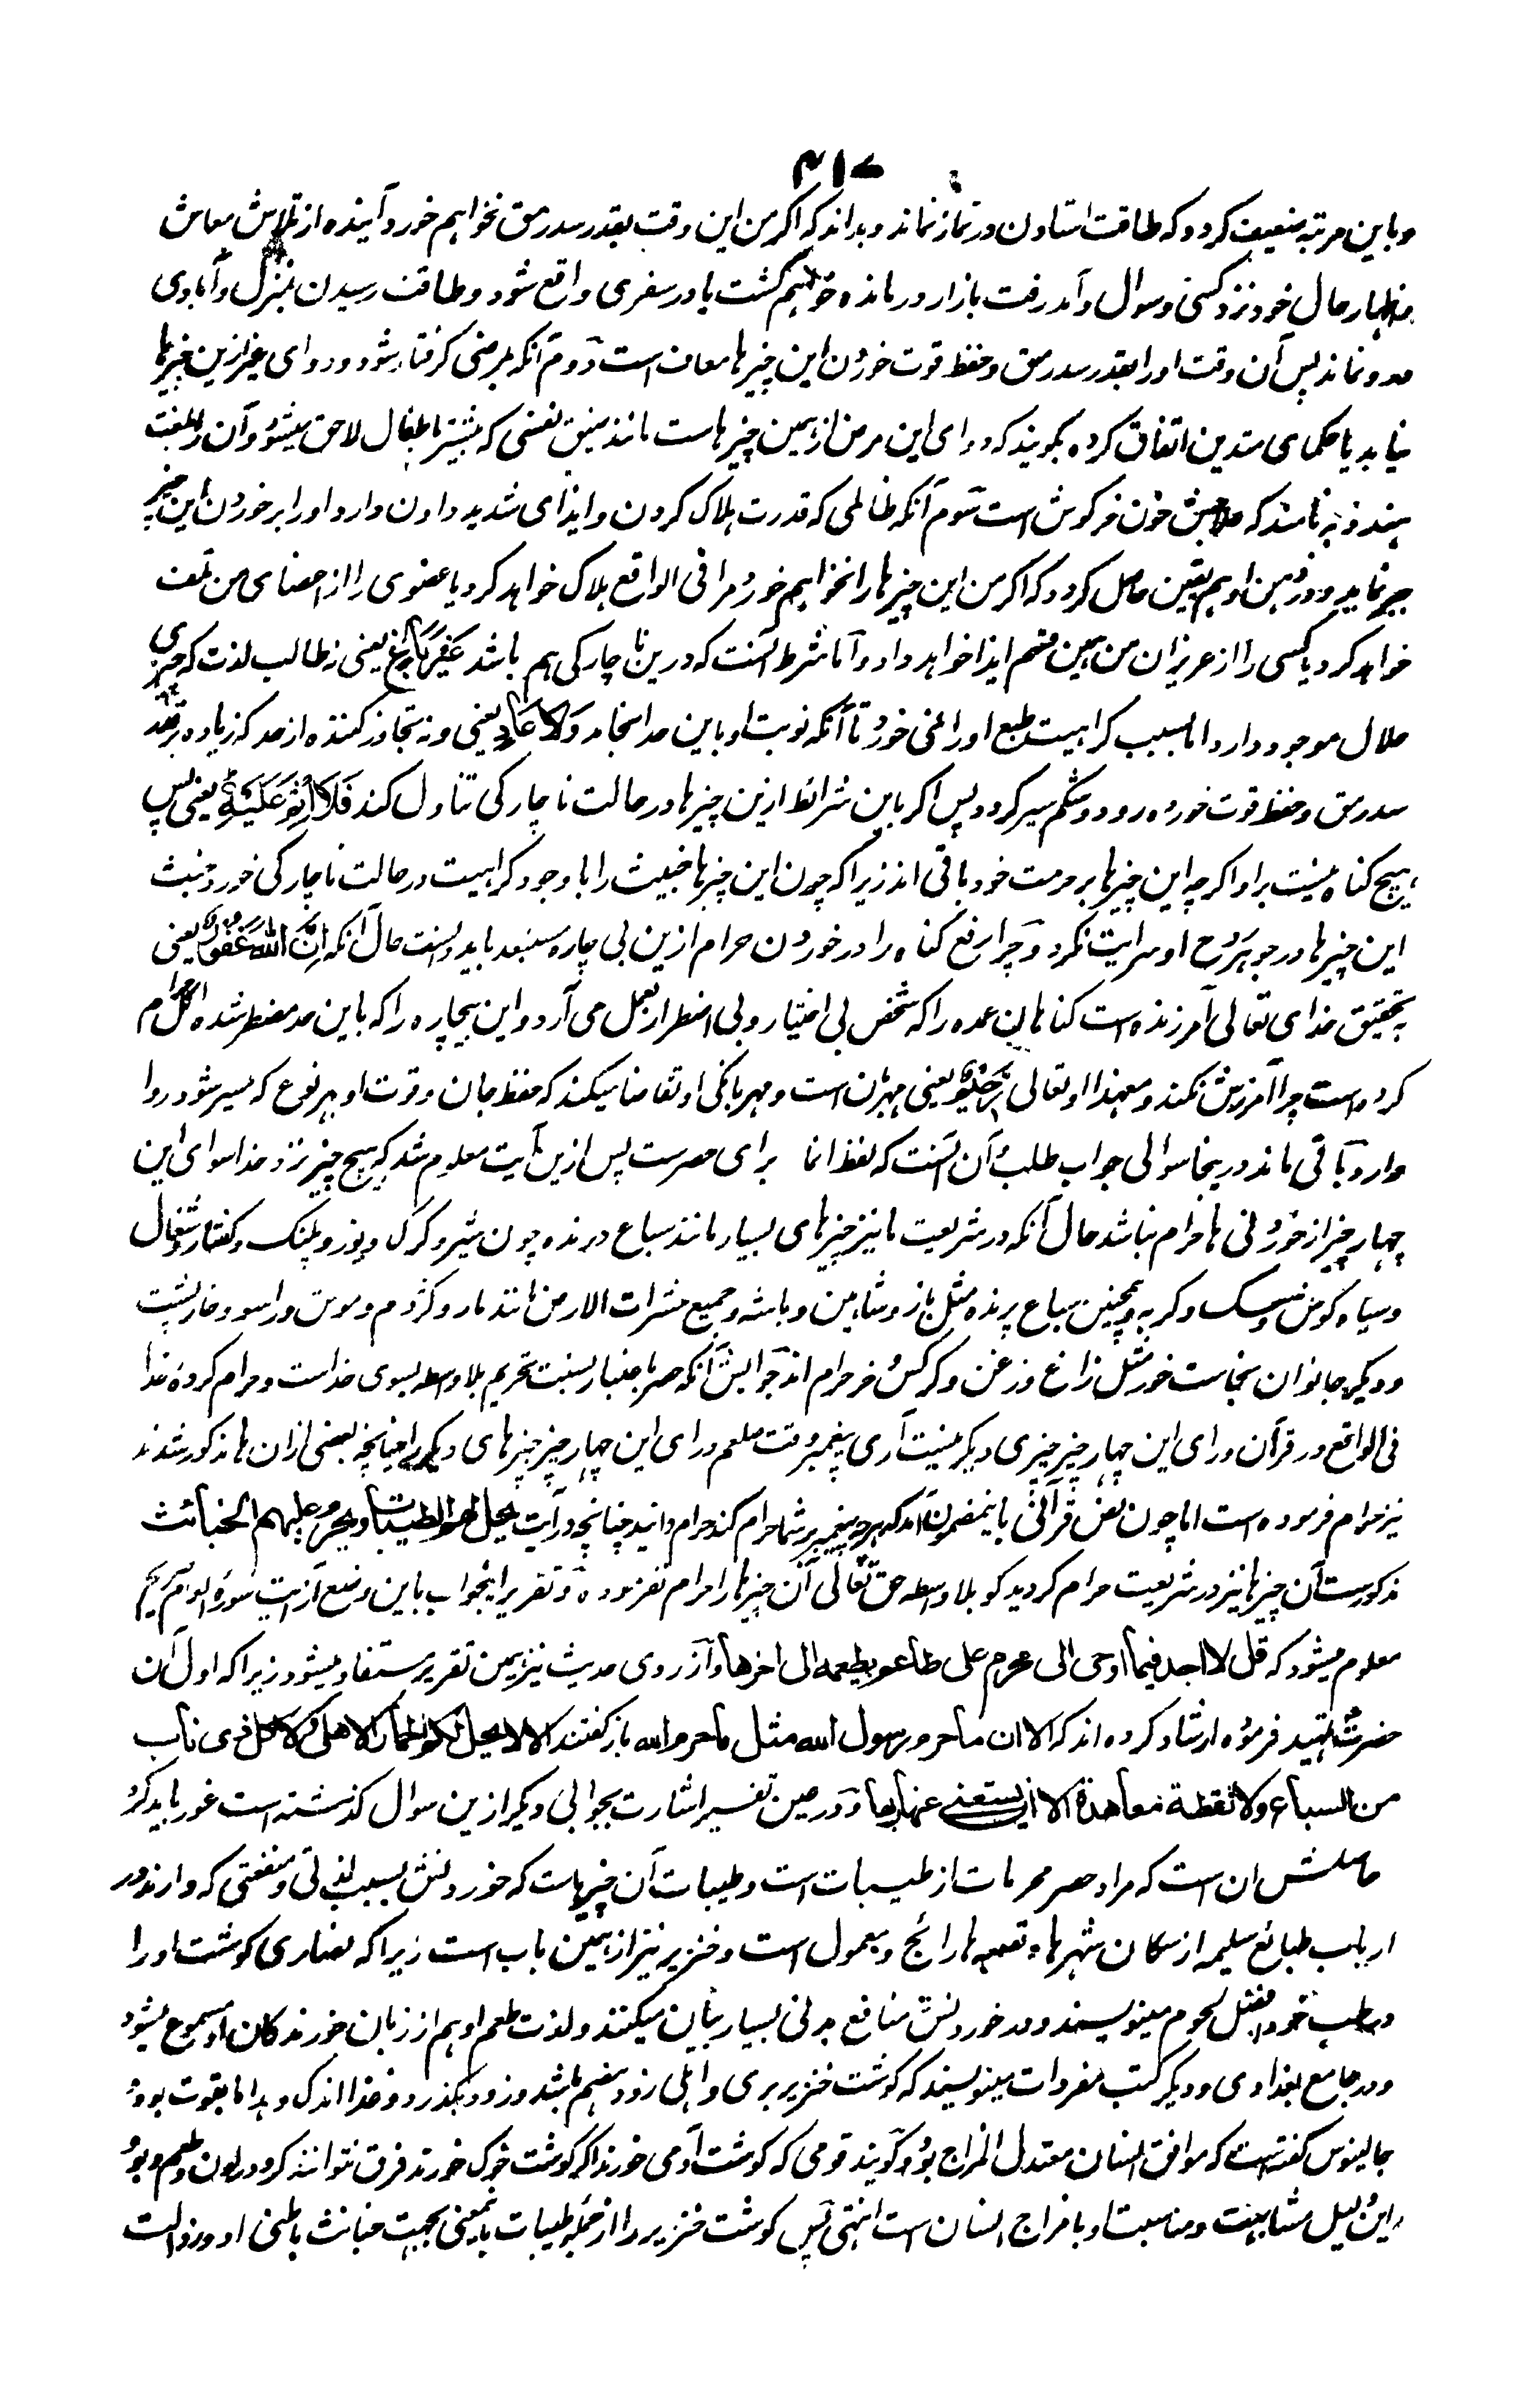 ۴۱۷
و باین مرتبه ضعیف کردد که طاقت استادن در نماز نماند و بداند که اکر من این وقت بقدر سد رمق نخواهم خورد آینده از تلاش معاش
و اظهار حال خود نزد کسی و سوال و آمد رفت بازار درمانده خواهم کشت یا در سفری واقع شود و طاقت رسیدن بمنزل و آبادی
درو نماند پس آن وقت او را بقدر سد رمق و حفظ قوت خوردن این چیزها معاف است دوم آنکه بمرضی کرفتار شود و دوای غیر ازین چیزها
نیابد یا حکمای متدین اتفاق کرده بکویند که دوای این مرض از همین چیزهاست مانند ضیق نفسی که بیشتر باطفال لاحق میشود و آن را بلغت
هند نامند که علاجش خون خرکوش است سوم آنکه ظالمی که قدرت هلاک کردن و ایذای شدید دادن دارد او را بر خوردن این چیز
جبر نماید و در ذهن او هم یقین حاصل کردد که اکر من این چیزها را نخواهم خورد مرا فی الواقع هلاک خواهد کرد یا عضوی را از اعضای من تلف
خواهد کرد یا کسی را از عزیزان من همین قسم ایذا خواهد داد و اما شرط آنست که درین ناچارکی هم باشد غَیْرَ بَاغٍ یعنی نه طالب لذت که چیزی
حلال موجود دارد اما بسبب کراهیت طبع او را نمی خورد تا آنکه نوبت او باین حد انجامد وَلَا عَادٍ یعنی و نه تجاوز کننده از حد که زیاده بر قدر
سد رمق و حفظ قوت خورده رود و شکم سیر کردد پس اکر باین شرائط ازین چیزها در حالت ناچارکی تناول کند فَلَا اِثْمَ عَلَیْهِ یعنی پس
هیچ کناه نیست بر او اکرچه این چیزها بر حرمت خود باقی اند زیرا که چون این چیزها خبیث را با وجود کراهیت در حالت ناچارکی خورد خبث
این چیزها در جوهر روح او سرایت نکرد و چرا رفع کناه را در خوردن حرام ازین بی چاره مستبعد باید دانست حال آنکه اِنَّ اللهَ غَفُورٌ یعنی
بتحقیق خدای تعالی آمرزنده است کناهان عمده را که شخص بی اختیار و بی اضطرار بعمل می آرد و این بیچاره را که باین حد مضطر شده اکل حرام
کرده است چرا آمرزش نکند و معهذا او تعالی رَحِیْمٌ یعنی مهربان است و مهربانکی او تقاضا میکند که حفظ جان و قوت او بهر نوع که میسر شود روا
دارد باقی ماند درینجا سوالی جواب طلب و آن آنست که لفظ انما برای حصرست پس ازین آیت معلوم شد که هیچ چیز نزد خدا سوای این
چهار چیز از خوردنی ها حرام نباشد حال آنکه در شریعت ما نیز چیزهای بسیار مانند سباع درنده چون شیر و کرک و یوز و پلنک و کفتار و شغال
و سیاه کوش و سک و کربه و همچنین سباع پرنده مثل باز و شاهین و باشه و جمیع حشرات الارض مانند مار و کژدم و موش و راسو و خارپشت
و دیکر جانوران نجاست خور مثل زاغ و زغن و کرکس و خر حرام اند جوابش آنکه حصر باعتبار نسبت تحریم بلاواسطه بسوی خداست و حرام کرده خدا
فی الواقع در قرآن ورای این چهار چیز چیزی دیکر نیست آری پیغمبر وقت صلعم ورای این چهار چیز چیزهای دیکر را چنانچه بعضی ازان ها مذکور شدند
نیز حرام فرموده است اما چون نص قرآنی باینمضمون آمد که هرچه پیغمبر بر شما حرام کند حرام دانید چنانچه در آیت یحل لهم الطیبات ویحرم علیهم الخبائث
مذکورست آن چیزها نیز در شریعت حرام کردید کو بلاواسطه حق تعالی آن چیزها را حرام نفرموده و تقریر اینجواب باین وضع از آیت سوره انعام
معلوم میشود که قل لا اجد فیما اوحی الی محرم علی طاعم یطعمه الی اخرها و از روی حدیث نیز همین تقریر مستفاد میشود زیرا که اول آن
حضرت تمهید فرموده ارشاد کرده اند که الا ان ما حرم رسول الله مثل ما حرم الله باز کفتند الا لا یحل لکم الحمار الاهلی ولا کل ذی ناب
من السباع ولا لقطة معاهدة الا ان یستغنی عنها ربها و در ضمن تفسیر اشارت بجوابی دیکر ازین سوال کذشته است غور باید کرد
حاصلش ان است که مراد حصر محرمات از طیبات است و طیبات آن چیزهاست که خوردنش بسبب لذتی و منفعتی که دارند در
ارباب طبائع سلیمه از سکان شهرها و قصبه ها رائج و معمول است و خنزیر نیز از همین باب است زیرا که نصاری کوشت او را
در طب خود افضل لحوم مینویسند و در خوردنش منافع بدنی بسیار بیان میکنند و لذت طعم او هم از زبان خورندکان او مسموع میشود
و در جامع بغدادی و دیکر کتب مفردات مینویسند که کوشت خنزیر بری و اهلی زود هضم باشد و زود بکذرد و غذا اندک دهد اما بقوت بود
جالینوس کفته است که موافق انسان معتدل المزاج بود و کویند قومی که کوشت آدمی خورند اکر کوشت خوک خورند فرق نتوانند کرد در لون و طعم و بو
و این دلیل مشابهت و مناسبت او با مزاج انسان است انتهی پس کوشت خنزیر را از جمله طیبات باینمعنی بجهت خباثت باطنی او و رذالت